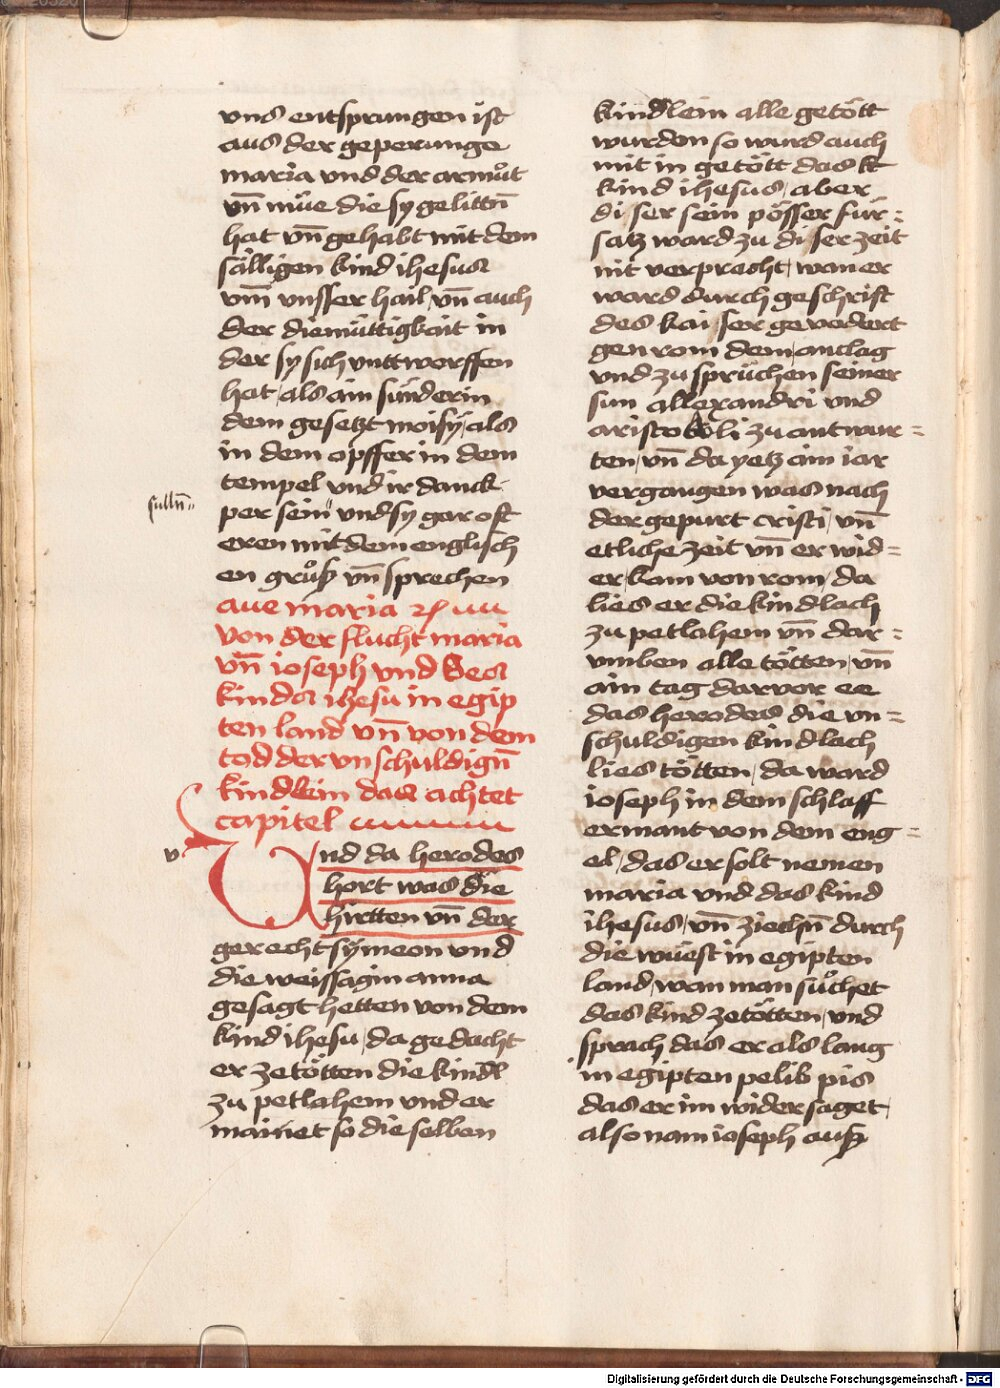 vnd entsprungen ist
aus der geperunge
maria vnd der armůt
vn̄ müe die sy gelittn̄
hat vn̄ gehabt mit dem
sälligen kind ihesus
vm̄ vnsser hail, vn̄ auch
der diemüttigkait in
der sy sich vntt worffen
hat, als ain sünderin
dem gesetzt moisÿ, als
in dem opffer in dem
tempel vnd ir danck
sulln̄
per sein vnd sy gar oft
eren mit dem englisch
en grůß vn̄ sprechen
aue maria
von der flucht maria
vn̄ ioseph vnd des
kinds ihesu in egip
ten land vn̄ von dem
tod der vnschuldign̄
kindlein das achtet
capitel
v
Vnd da herodes
hort was die
hirtten vn̄ der
gerecht sÿmeon vnd
die weissagin anna
gesagt hetten von dem
kind ihesu, da gedacht
er ze tötten die kindl
zu petlahem vnd er
mainet so die selben
kindlein alle getött
wurden so wurd auch
mit in getött das k
kind ihesus, aber
di ser sein pösser für=
satz ward zu di ser zeit
nit verpracht, wan er
ward durch geschrift
des kaisser gevodert
gen rom dem anclag
vnd zu sprüchen seiner
sun allexandri vnd
aristoboli zu antwur=
ten, vn̄ da yetz ain iar
vergangen was nach
der gepurt cristi, vn̄
etliche zeit vn̄ er wid=
er kam von rom, da
lies er die kindlach
zu petlahem vn̄ dar=
vmben alle tötten, vn̄
ain tag darvor ee
das herodes die vn=
schuldigen kindlach
lies tötten, da ward
ioseph in dem schlaff
ermant von dem eng=
el, das er solt nemen
maria vnd das kind
ihesus, vn̄ ziechn̄ durch
die wüest in egipten
land, wan man sůchet
das kind ze tötten, vnd
sprach das er als lang
in egipten pelib pis
das er im wider saget,
also nam ioseph auß
Digitalisierung gefördert durch die Deutsche Forschungsgemeinschaft - DFG